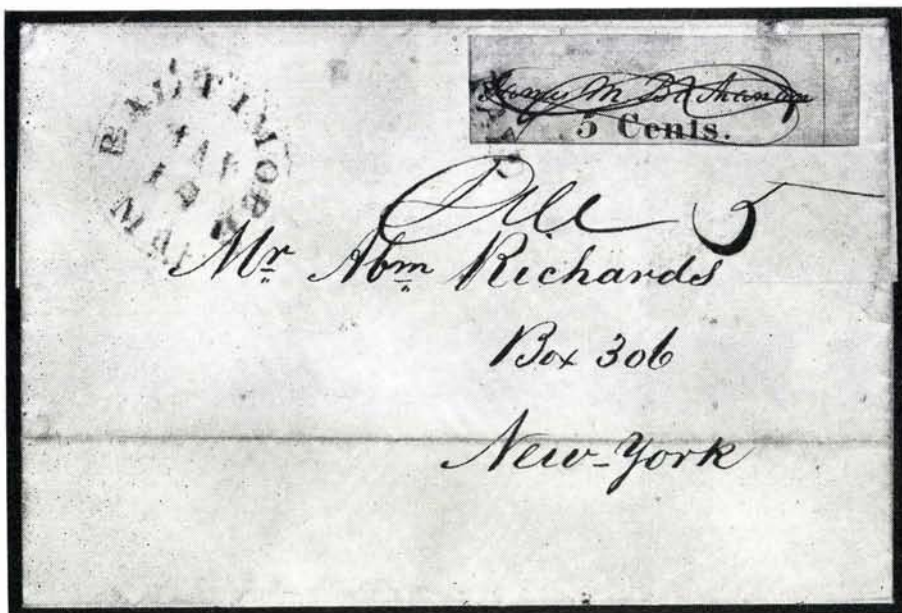 BALTIMORE
James M Buchanan
5 Cents.
Due 5
Mr Abm Richards
Box 306
New-York